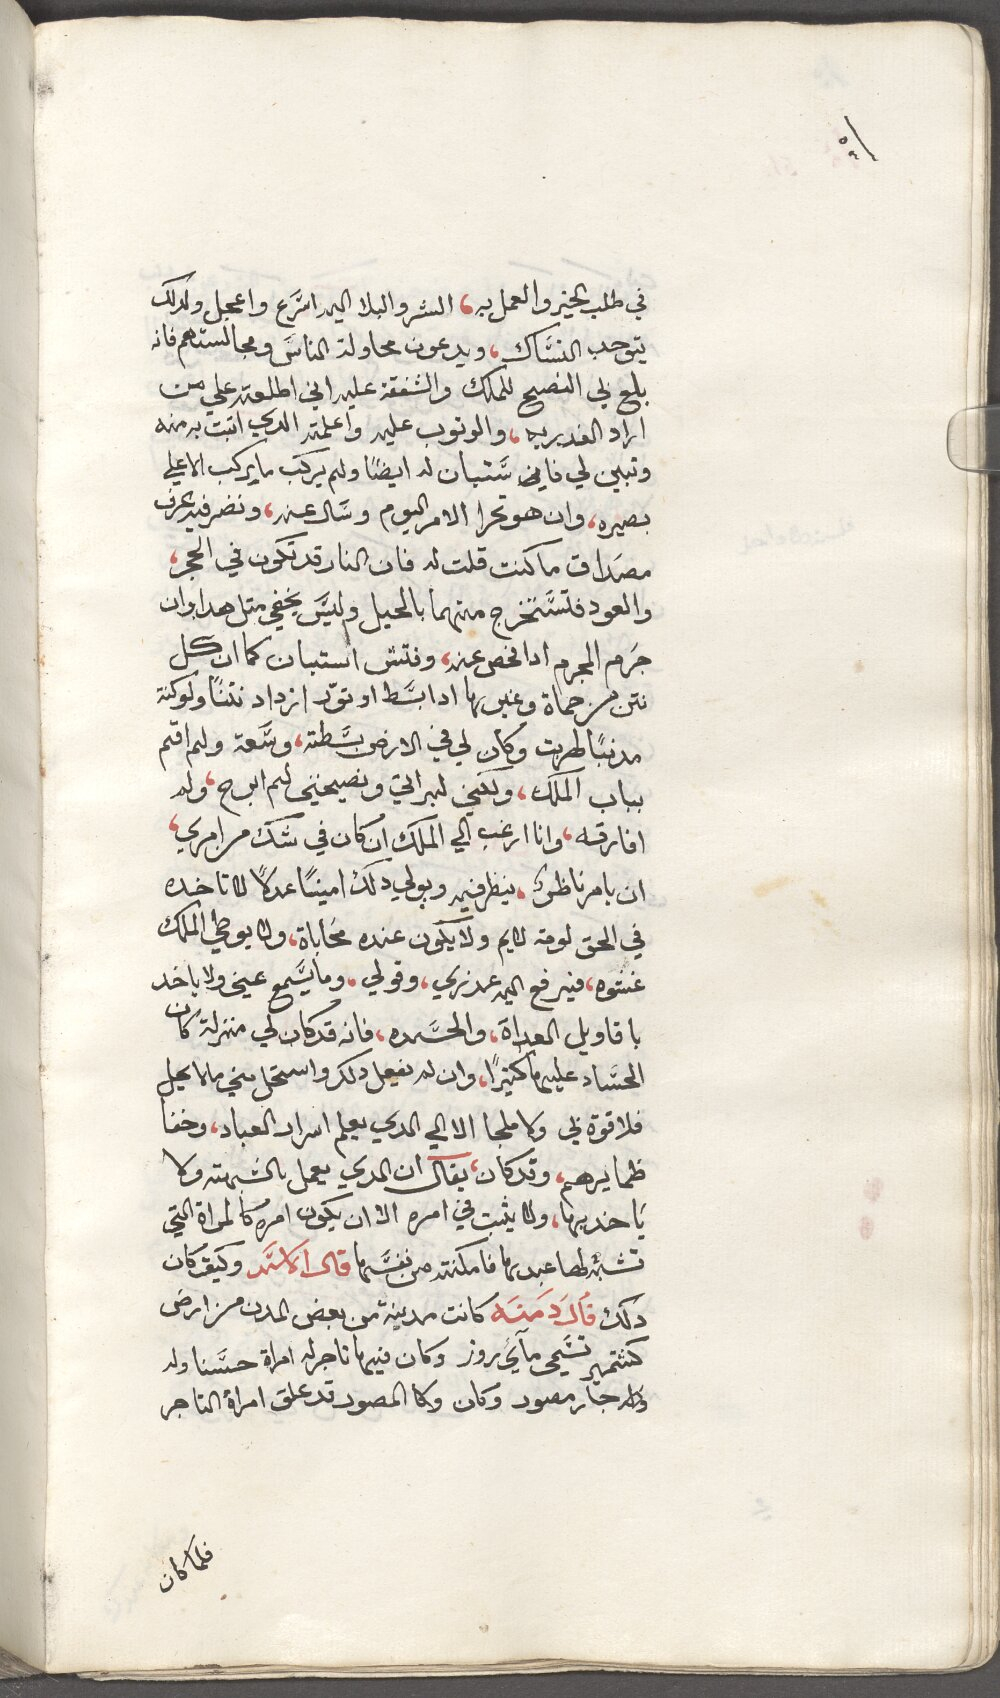 في طلب الخير والعمل به، الشر والبلا اليه اسرع واعجل ولدلك
يتوحد النساك، ويدعون محاولة الناس ومجالستهم فانه
بلغ لي النصيح للملك والشفقة عليه اني اطلعته علي من
اراد الغدر به، والوتوب عليه واعلمته الدي اتبت به منه
وتبين لي فاني ستبان له ايضًا ولم يركب ما يركب الا علي
بصيره، وان هو تحرا الامر اليوم وسال عنه، ونضر فيه عرف
مصداق ما كنت قلت له فان النار قد تكون في الحجر،
والعود فتستخرج منهما بالحيل وليس يخفي متل هدا وان
جرم المجرم ادا فحص عنه، وفتش استبان كما ان كل
نتن من حماة وغيرها ادا بسط او توّر ازداد نتنًا ولو كنة
مدنبًا لهربت وكان لي في الارض بسطة، وسعة ولم اقم
بباب الملك، ولكني لبراتي ونصيحتي لم ابرح، ولم
افارقه، وانا ارغب الي الملك ان كان في شك من امري،
ان يامر ناظرك، ينظر فيه ويولي دلك امينًا عدلًا لا تاخده
في الحق لومة لايم ولا يكون عنده محاباة، ولا يوطي الملك
عشوه، فيرفع اليه عدري، وقولي، وما يسمع عيني ولا ياخد
باقاويل العداة، والحسده، فانه قد كان لي منزلة كان
الحساد عليها كتيرًا، وان لم يفعل دلك واستحل مني ما لا يحل
فلا قوة لي ولا ملجا الا الي الدي يعلم اسرار العباد، وخفا
ظمايرهم، وقد كان، يقال ان الدي يعمل بالشبهته ولا
ياخد بها، ولا يثبت في امره الا ان يكون امره كالمراة التي
تشبه لها عبدها فامكنته من نفسها قال الاسد وكيف كان
دلك قال دمنه كانت مدينة من بعض المدن من ارض
كشتمير تسمي مآي روز وكان فيها تاجر له امراة حسنا وله
وله جار مصور وكان وكا المصور قد علق امراة التاجر
فلما كان